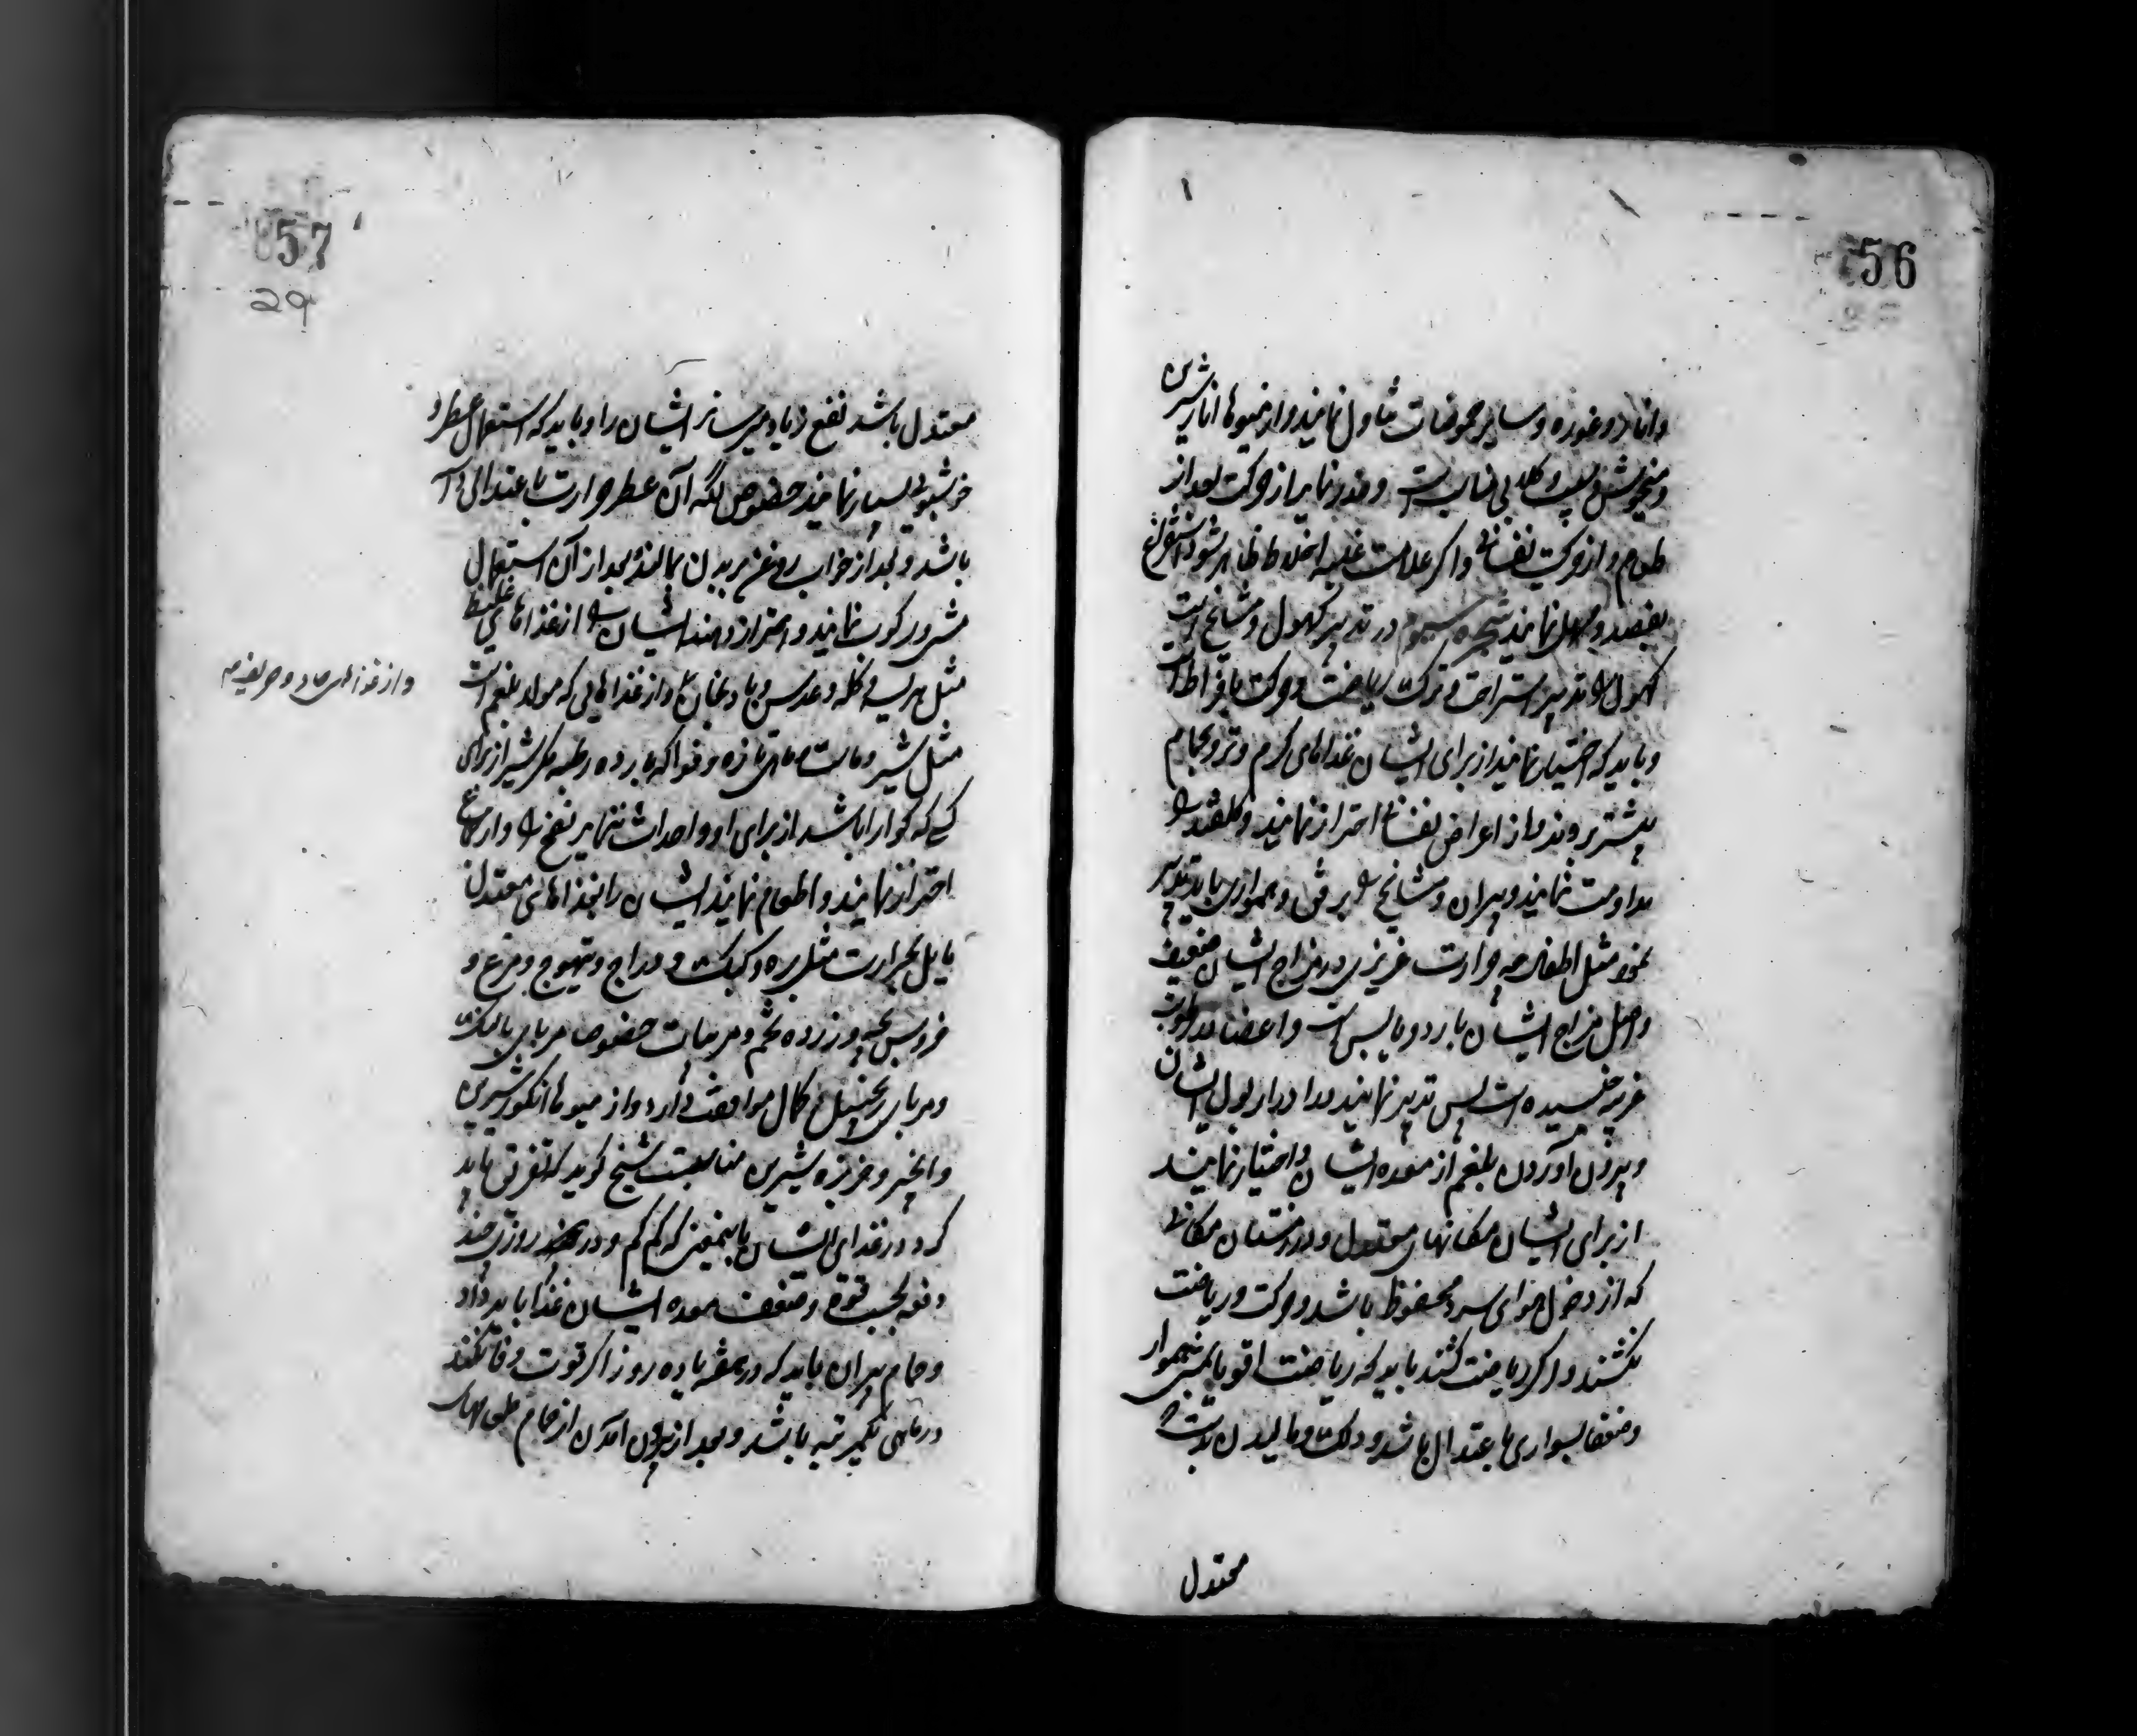 56
وانار و غوره و سایر حموضات تناول نمایند و از میوها انار شیرین
و میخوش و سیب و گلابی مناسب است و حذر نمایند از حرکت بعد از
طعام و از حرکت نفسانی و اگر علامت غلبه اخلاط ظاهر شود استفراغ
بفصد و مسهل نمایند شجره سیوم در تدبیر کهول و مشایخ است
کهول را تدبیر استراحت و ترک ریاضت و حرکت بافراط است
و باید که اختیار نمایند از برای ایشان غذاهای گرم و تر و بحمام
بیشتر روند و از اعراض نفسانی احتراز نمایند و گلقند را
مداومت نمایند و پیران و مشایخ را برفق و همواری باید تدبیر
نمود مثل اطفال چه حرارت غریزی در مزاج ایشان ضعیف
و اصل مزاج ایشان بارد و یابس است و اعضا برطوبت
غریبه خیسیده است پس تدبیر نمایند در ادرار بول ایشان
و بیرون آوردن بلغم از معده ایشان و اختیار نمایند
از برای ایشان مکانهای معتدل و در زمستان مکانی
که از دخول هوای سرد محفوظ باشد و حرکت و ریاضت
نکنند و اگر ریاضت کنند باید که ریاضت اقویا بمشی هموار
و ضعفا بسواری باعتدال باشد و دلک و مالیدن بدست
معتدل
57
29
معتدل باشد نفع زیاد میرساند ایشان را و باید که استعمال عطر و
خوشبوی بسیار نمایند خصوص که آن عطر حرارت باعتدالی
باشد و بعد از خواب روغن بر بدن بمالند و بعد از آن استعمال
مشی و رکوب نمایند و احتراز دهند ایشان را از غذاهای غلیظ
مثل هریسه و کله و عدس و بادنجان و از غذاهایی که مولد بلغم است
مثل شیر و ماست و ماهی تازه و فواکه بارده رطبه مگر شیر از برای
کسی که گوارا باشد از برای او و احداث نماید نفخ را و از جماع
احتراز نمایند و اطعام نمایند ایشان را بغذاهای معتدل
مایل بحرارت مثل بره و کبک و دراج و تیهوج و مرغ و
خروس بچه و زرده تخم و مربیات خصوصا مربای بالنگ
و مربای زنجبیل کمال موافقت دارد و از میوها انگور شیرین
و انجیر و خربزه شیرین مناسبست شیخ گوید که تفرقی باید
کرد در غذای ایشان باینمعنی که کم کم و در هر روزی چند
دفعه بحسب قوة و ضعف معده ایشان غذا باید داد
و حمام پیران باید که در هفته یا ده روز اگر قوت وفا نکند
در ماهی یکمرتبه باشد و بعد از بیرون آمدن از حمام
و از غذاهای حاد و حریفه هم